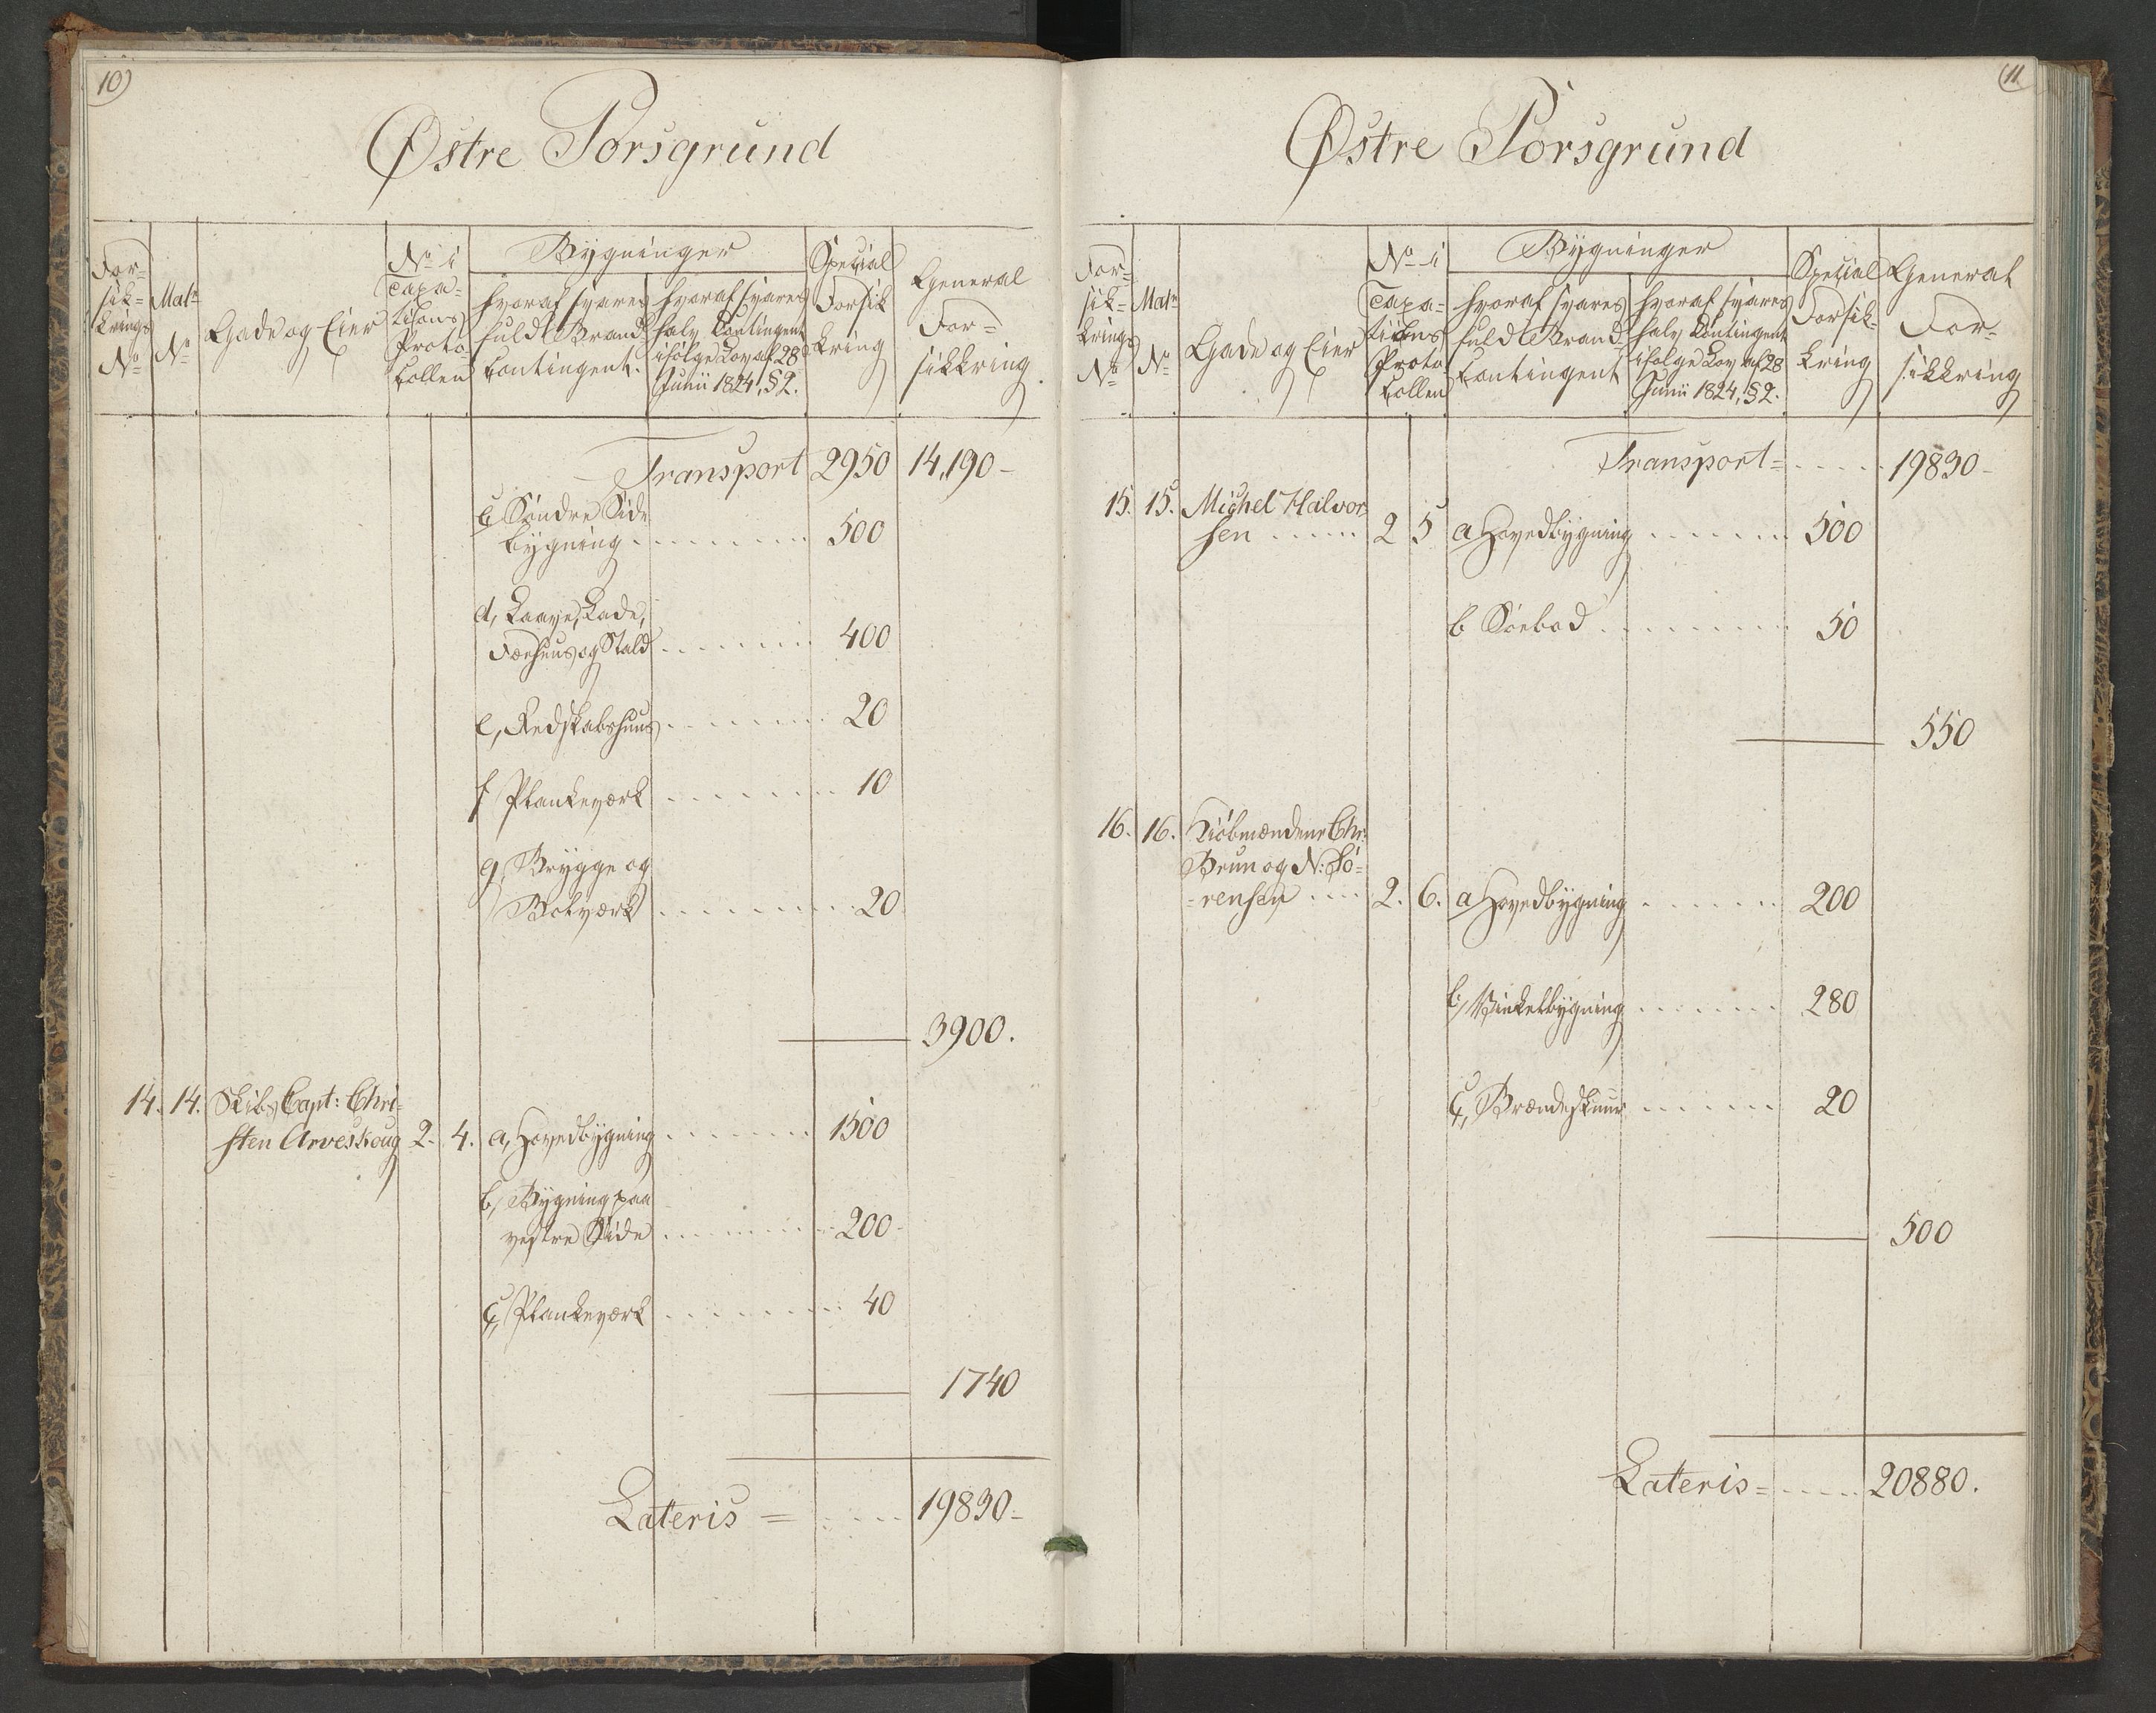 10)
Østre Porsgrund
For=
sik=
krings
No
Mats
No
Gade og Eier
No i
Taxa=
tions
Proto=
collen
Bygninger
hvoraf svares
fuld Brand-
Contingent.
hvoraf svares
halv Contingent
ifølge Lov af 28
Junii 1824, § 2.
Special
Forsik
kring
General
For=
sikkring
Transport 2950 14,190-
c, Søndre Side
bygning . . . . . . . . 500
d, Laave, Lade,
Fæehuus og Stald . . . . . . 400
e, Redskabshuus . . . . . . 20
f Plankeværk . . . . . . 10
g, Brygge og
Bolværk . . . . . . . . 20
3900.
14. 14. Skibs Capt: Chri-
sten Arveskoug 2. 4. a, Hovedbygning . . . . . . 1500
b, Bygning paa
vestre Side . . . . . . 200-
c, Plankeværk . . . . . . 40
1740
Lateris = . . . . 19830-
(11
Østre Porsgrund
For=
sik=
krings
No
Mats
No
Gade og Eier
No i
Taxa=
tions
Proto=
collen
Bygninger
hvoraf svares
fuld Brand-
Contingent
hvoraf svares
halv Contingent
ifølge Lov af 28
Junii 1824, § 2.
Special
Forsik-
kring
General
For=
sikkring
Transport= . . . . . 19830-
15. 15. Michel Halvor
sen . . . . . 2 5 a Hovedbygning . . . . . . 500
b Søebod . . . . . . . . 50
550
16. 16. Kiøbmændene Chr:
Brun og N: Sö=
=rensen . . . . 2. 6. a Hovedbygning . . . . . . 200
b, Vinkelbygning . . . . . . 280
c, Brændeskuur . . . . . . 20
500
Lateris= . . . . . 20880.